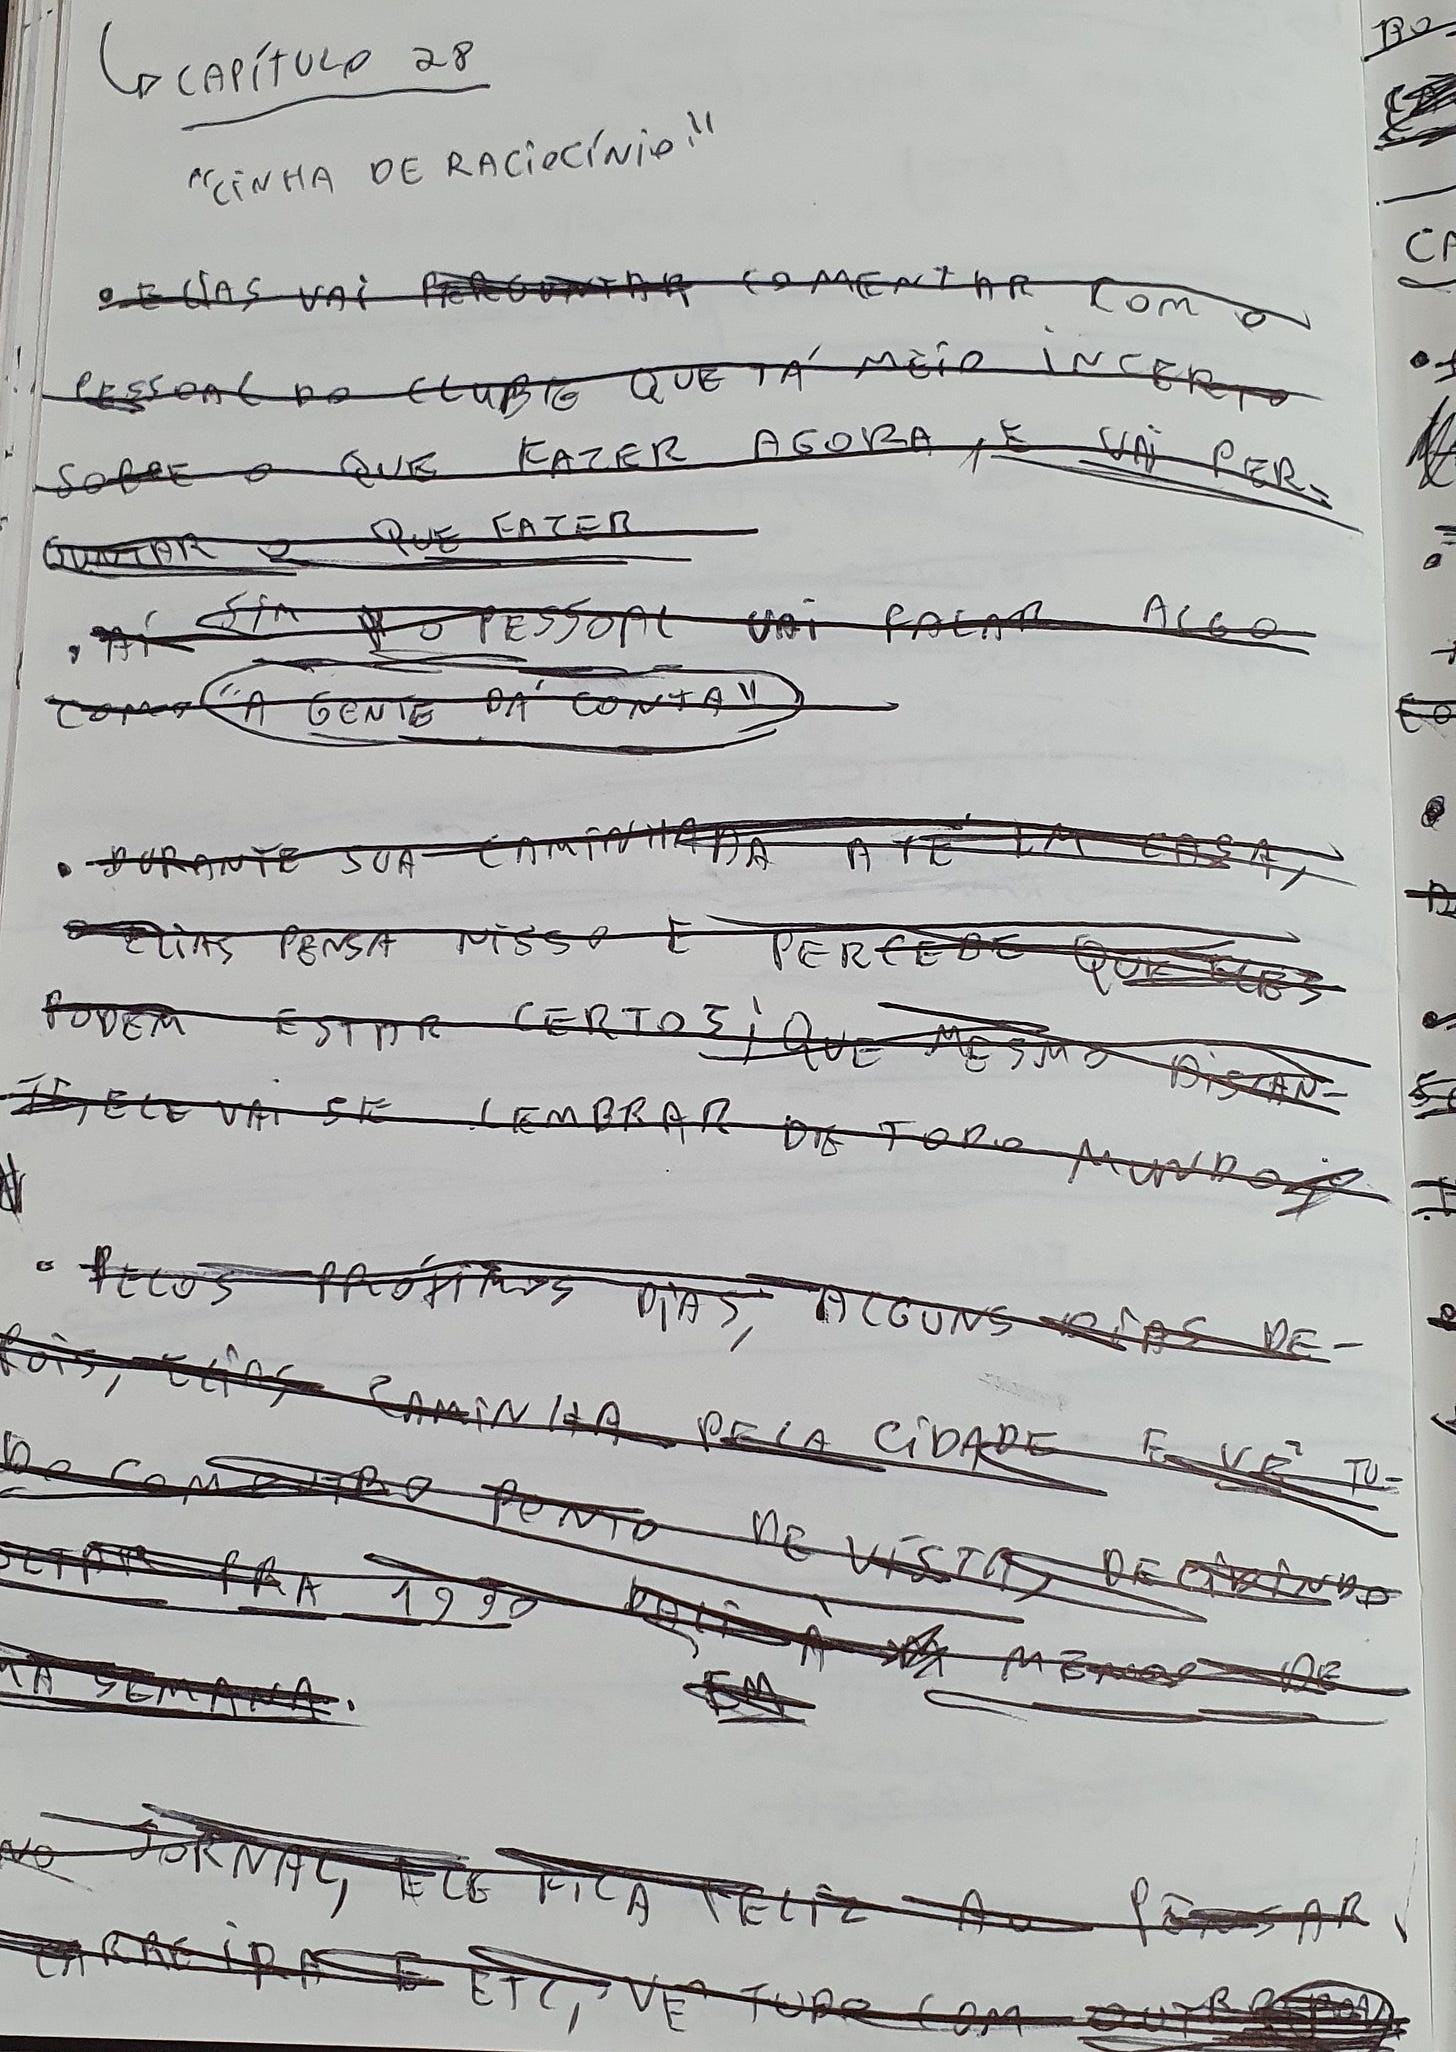 CAPÍTULO 28
"LINHA DE RACIOCÍNIO"
• ELIAS VAI PERGUNTAR COMENTAR COM O
PESSOAL DO CLUBE QUE TÁ MEIO INCERTO
SOBRE O QUE FAZER AGORA, E VAI PER-
GUNTAR O QUE FAZER
• AÍ SIM O PESSOAL VAI FALAR ALGO
COMO "A GENTE DÁ CONTA"
• DURANTE SUA CAMINHADA ATÉ EM CASA,
ELIAS PENSA NISSO E PERCEBE QUE ELES
PODEM ESTAR CERTOS; QUE MESMO DISTAN-
TE, ELE VAI SE LEMBRAR DE TODO MUNDO;
• PELOS PRÓXIMOS DIAS, ALGUNS DIAS DE-
POIS, ELIAS CAMINHA PELA CIDADE E VÊ TU-
DO COM OUTRO PONTO DE VISTA, DECIDINDO
VOLTAR PRA 1990 DALI À MENOS DE
EM
MA SEMANA.
NO JORNAL, ELE FICA FELIZ AO PENSAR
CARREIRA E ETC, VÊ TUDO COM